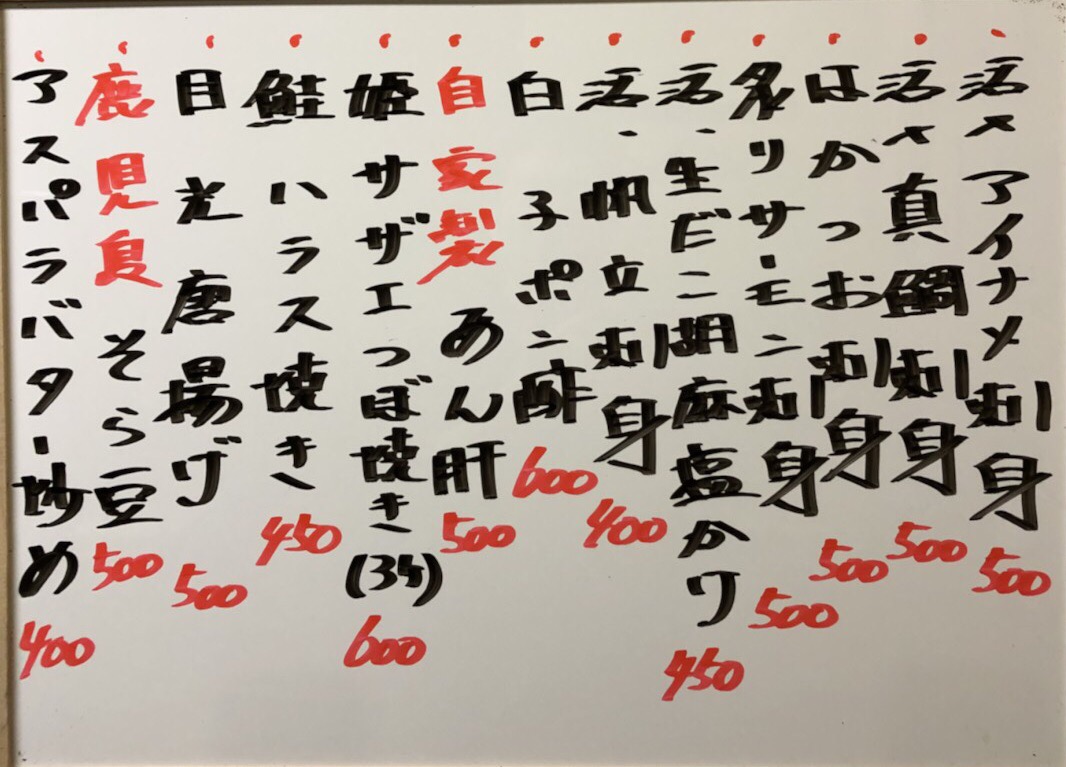 ・活〆アイナメ刺身 500
・活〆真鯛刺身 500
・はかつお刺身 500
・炙りサーモン刺身 500
・活・生だこ胡麻塩かけ 450
・活・帆立刺身 400
・白子ポン酢 600
・自家製 あん肝 500
・姫サザエつぼ焼き(3ケ) 600
・鮭ハラス焼き 450
・目光唐揚げ 500
・鹿児島 そら豆 500
・アスパラバター炒め 400